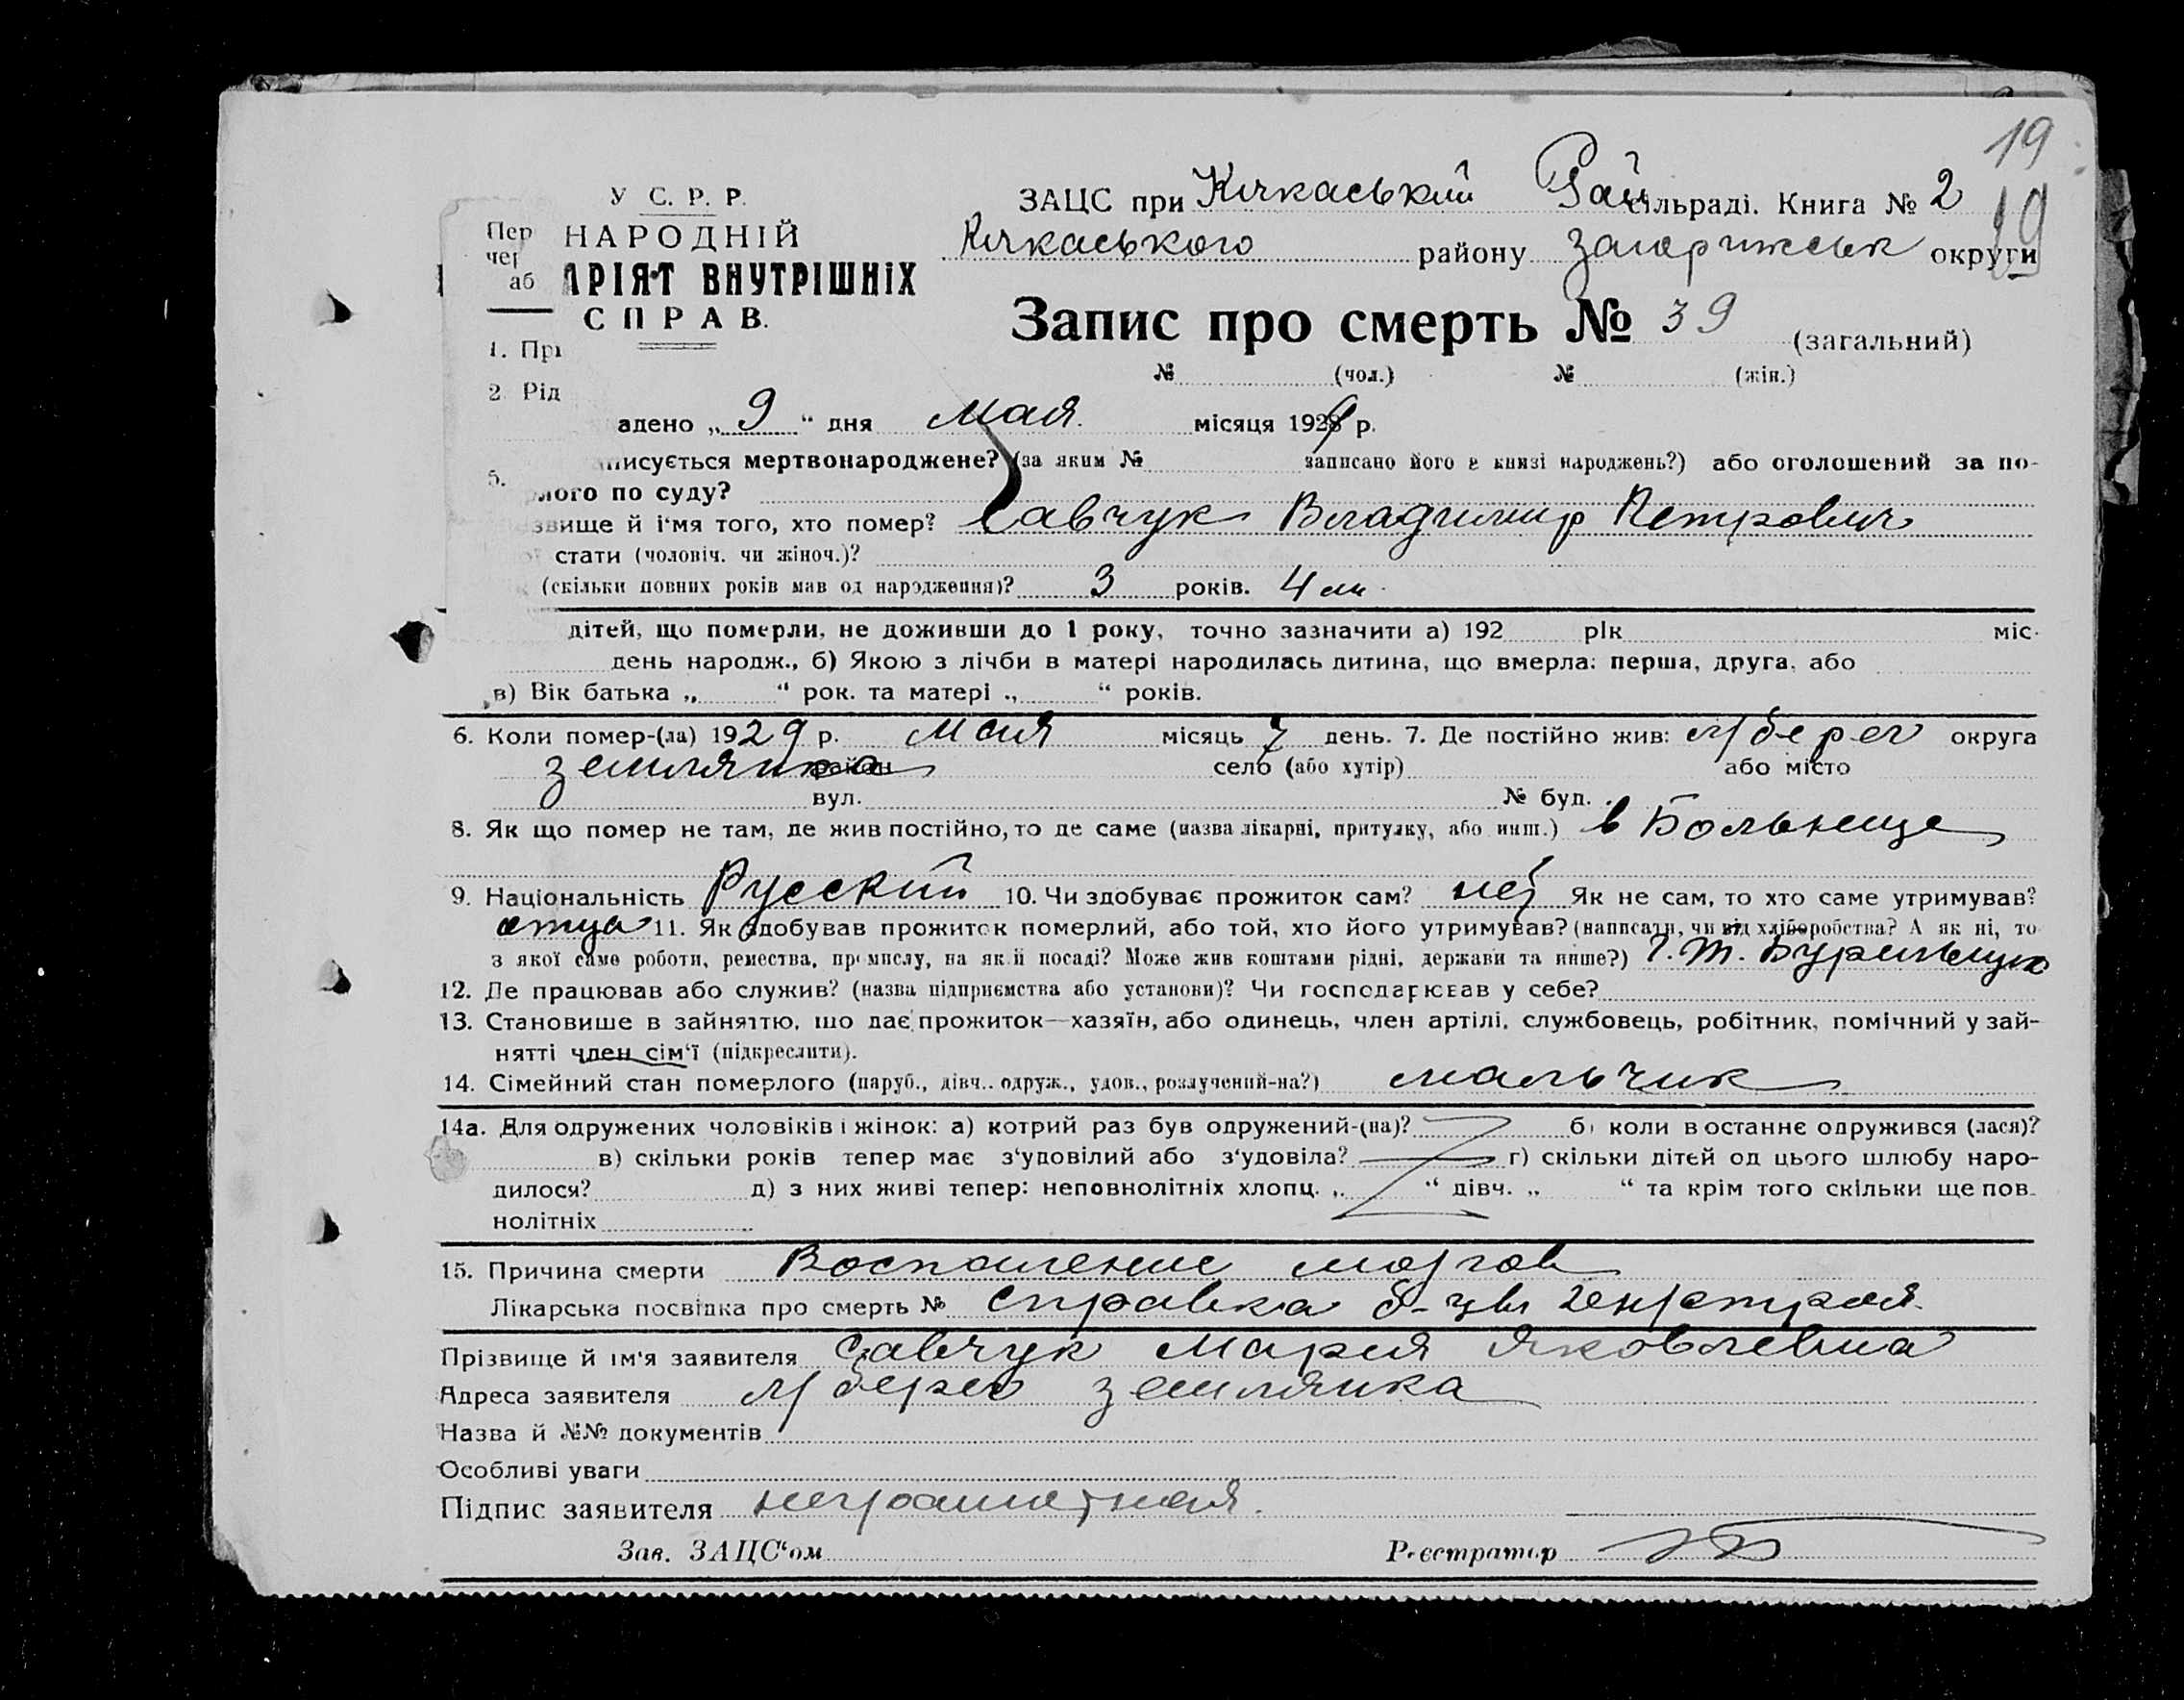 19
У С. Р. Р.
ЗАЦС при Кичкаський Рай сільраді. Книга № 2
19
Пер НАРОДНІЙ
чер
Кичкаського району Запорижськ округи
аб АРІЯТ ВНУТРІШНІХ
СПРАВ.
Запис про смерть № 39 (загальний)
1. Прі
№ (чол.) № (жін.)
2. Рід
адено „ 9 “ дня мая місяця 1929 р.
писується мертвонароджене? (за яким № записано його в книзі народжень?) або оголошений за по-
5.
лого по суду?
звище й і‘мя того, хто помер? Савчук Владимир Петрович
стати (чоловіч. чи жіноч.)?
(скільки повних років мав од народження)? 3 років. 4 м
дітей, що померли, не доживши до 1 року, точно зазначити а) 192 рік міс.
день народж., б) Якою з лічби в матері народилась дитина, що вмерла: перша, друга, або
в) Вік батька „ “ рок. та матері „ “ років.
6. Коли помер-(ла) 1929 р. мая місяць 7 день. 7. Де постійно жив: берег округа
землянка район село (або хутір) або місто
вул. № буд.
8. Як що помер не там, де жив постійно, то де саме (назва лікарні, притулку, або инш.) в Больнице
9. Національність Русский 10. Чи здобуває прожиток сам? нет Як не сам, то хто саме утримував?
отца 11. Як здобував прожиток померлий, або той, хто його утримував? (написати, чи від хліборобства? А як ні, то
з якої саме роботи, ремества, промислу, на якій посаді? Може жив коштами рідні, держави та инше?)
12. Де працював або служив? (назва підприємства або установи)? Чи господарював у себе?
13. Становище в зайняттю, що дає прожиток—хазяїн, або одинець, член артілі, службовець, робітник, помічний у зай-
нятті член сім‘ї (підкреслити).
14. Сімейний стан померлого (паруб., дівч., одруж., удов., розлучений-на?) мальчик
14а. Для одружених чоловіків і жінок: а) котрий раз був одружений-(на)? б) коли востаннє одружився (лася)?
в) скільки років тепер має з‘удовілий або з‘удовіла? г) скільки дітей од цього шлюбу наро-
дилося? д) з них живі тепер: неповнолітніх хлопц. „ “ дівч. „ “ та крім того скільки ще пов-
нолітніх
15. Причина смерти Воспаление мозгов
Лікарська посвідка про смерть № справка б-цы
Прізвище й ім‘я заявителя Савчук Мария Яковлевна
Адреса заявителя берег землянка
Назва й №№ документів
Особливі уваги
Підпис заявителя неграматная.
Зав. ЗАЦС‘ом Реєстратор